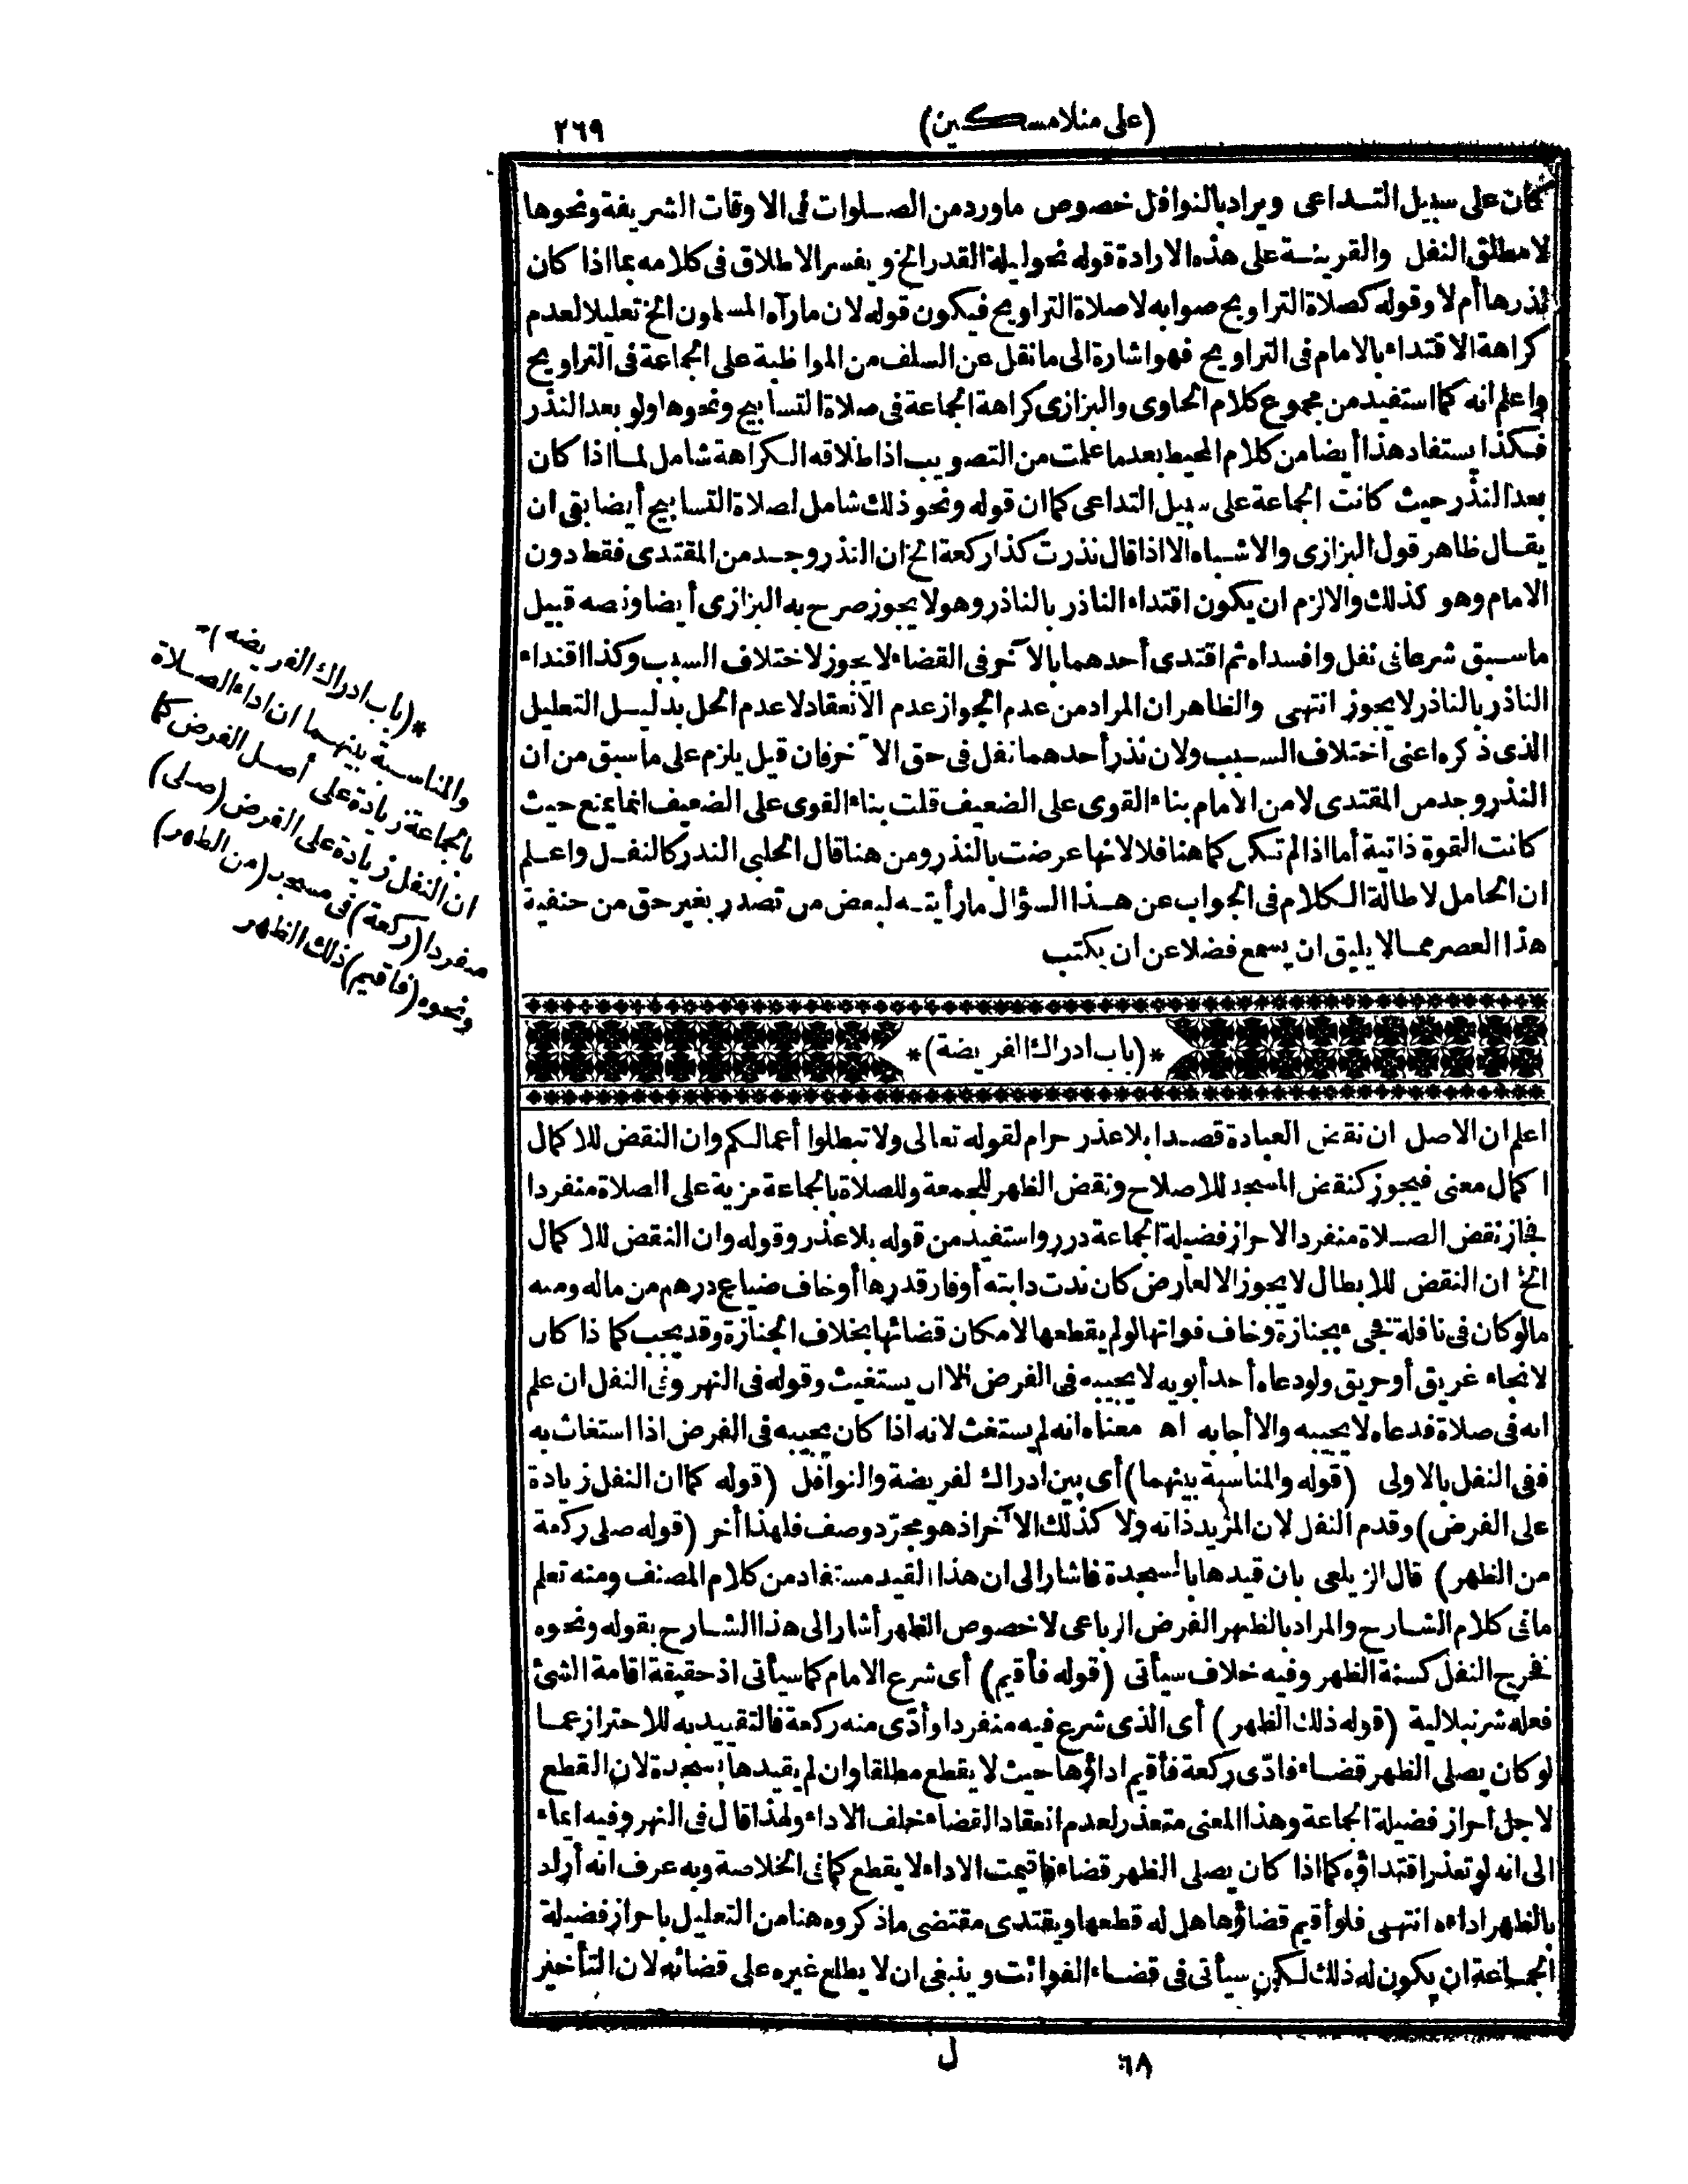 (على منلا مسكين)
٢٦٩
كان على سبيل التداعى ويراد بالنوافل خصوص ماورد من الصلوات فى الاوقات الشريفة ونحوها
لا مطلق النفل والقرينة على هذه الارادة قوله نحو ليلة القدر الخ و يفسر الاطلاق فى كلامه بما اذا كان
نذرها أم لا وقوله كصلاة التراويح صوابه لا صلاة التراويح فيكون قوله لان مارآه المسلمون الخ تعليلا لعدم
كراهة الاقتداء بالامام فى التراويح فهو اشارة الى مانقل عن السلف من المواظبة على الجماعة فى التراويح
واعلم انه كما استفيد من مجموع كلام الحاوى والبزازى كراهة الجماعة فى صلاة التسابيح ونحوها ولو بعد النذر
فكذا يستفاد هذا أيضا من كلام المحيط بعد ما علمت من التصويب اذ اطلاقه الكراهة شامل لما اذا كان
بعد النذر حيث كانت الجماعة على سبيل التداعى كما ان قوله ونحو ذلك شامل لصلاة التسابيح أيضا بقى ان
يقال ظاهر قول البزازى والاشباه الا اذا قال نذرت كذا ركعة الخ ان النذر وجد من المقتدى فقط دون
الامام وهو كذلك والالزم ان يكون اقتداء الناذر بالناذر وهو لا يجوز صرح به البزازى أيضا ونصه قبيل
ما سبق شرعا فى نفل وافسداه ثم اقتدى أحدهما بالآخر فى القضاء لا يجوز لاختلاف السبب وكذا اقتداء
الناذر بالناذر لا يجوز انتهى والظاهر ان المراد من عدم الجواز عدم الانعقاد لا عدم الحل بدليل التعليل
الذى ذكره اعنى اختلاف السبب ولان نذر أحدهما نفل فى حق الآخر فان قيل يلزم على ما سبق من ان
النذر وجد من المقتدى لا من الامام بناء القوى على الضعيف قلت بناء القوى على الضعيف انما يمنع حيث
كانت القوة ذاتية أما اذا لم تكن كما هنا فلا لانها عرضت بالنذر ومن هنا قال الحلبى النذر كالنفل واعلم
ان الحامل لاطالة الكلام فى الجواب عن هذا السؤال ما رأيته لبعض من تصدر بغير حق من حنفية
هذا العصر مما لا يليق ان يسمع فضلا عن ان يكتب
*(باب ادراك الفريضة)*
اعلم ان الاصل ان نقض العبادة قصدا بلا عذر حرام لقوله تعالى ولا تبطلوا أعمالكم وان النقض للاكمال
اكمال معنى فيجوز كنقض المسجد للاصلاح ونقض الظهر للجمعة وللصلاة بالجماعة مزية على الصلاة منفردا
فجاز نقض الصلاة منفردا لاحراز فضيلة الجماعة درر واستفيد من قوله بلا عذر وقوله وان النقض للاكمال
الخ ان النقض للابطال لا يجوز الا لعارض كان ندت دابته أو فار قدرها أو خاف ضياع درهم من ماله ومنه
مالو كان فى نافلة فجىء بجنازة وخاف فواتها لو لم يقطعها لامكان قضائها بخلاف الجنازة وقد يجب كما ذا كان
لانجاء غريق أو حريق ولو دعاه أحد أبويه لا يجيبه فى الفرض الا ان يستغيث وقوله فى النهر وفى النفل ان علم
انه فى صلاة فدعاه لا يجيبه والا أجابه اه معناه انه لم يستغث لانه اذا كان يجيبه فى الفرض اذا استغاث به
ففى النفل بالاولى (قوله والمناسبة بينهما) أى بين ادراك لفريضة والنوافل (قوله كما ان النفل زيادة
على الفرض) وقدم النفل لان المزيد ذاته ولا كذلك الآخر اذ هو مجرّد وصف فلهذا أخر (قوله صلى ركعة
من الظهر) قال الزيلعى بان قيدها بالسجدة فاشار الى ان هذا القيد مستفاد من كلام المصنف ومنه تعلم
مافى كلام الشارح والمراد بالظهر الفرض الرباعى لا خصوص الظهر أشار الى هذا الشارح بقوله ونحوه
فخرج النفل كسنة الظهر وفيه خلاف سيأتى (قوله فأقيم) أى شرع الامام كما سيأتى اذ حقيقة اقامة الشئ
فعله شرنبلالية (قوله ذلك الظهر) أى الذى شرع فيه منفردا وأدّى منه ركعة فالتقييد به للاحتراز عما
لو كان يصلى الظهر قضاء فادّى ركعة فأقيم اداؤها حيث لا يقطع مطلقا وان لم يقيدها بسجدة لان القطع
لاجل احراز فضيلة الجماعة وهذا المعنى متعذر لعدم انعقاد القضاء خلف الاداء ولهذا قال فى النهر وفيه ايماء
الى انه لو تعذر اقتداؤه كما اذا كان يصلى الظهر قضاء فاقيمت الاداء لا يقطع كما فى الخلاصة وبه عرف انه أراد
بالظهر اداءه انتهى فلو أقيم قضاؤها هل له قطعها ويقتدى مقتضى ماذكروه هنا من التعليل باحراز فضيلة
الجماعة ان يكون له ذلك لكن سيأتى فى قضاء الفوائت وينبغى ان لا يطلع غيره على قضائه لان التأخير
٦٨
ل
*(باب ادراك الفريضة)*
والمناسبة بينهما ان اداء الصلاة
بالجماعة زيادة على أصل الفرض كما
ان النفل زيادة على الفرض (صلى)
منفردا (ركعة) فى مسجد (من الظهر)
ونحوه (فاقيم) ذلك الظهر